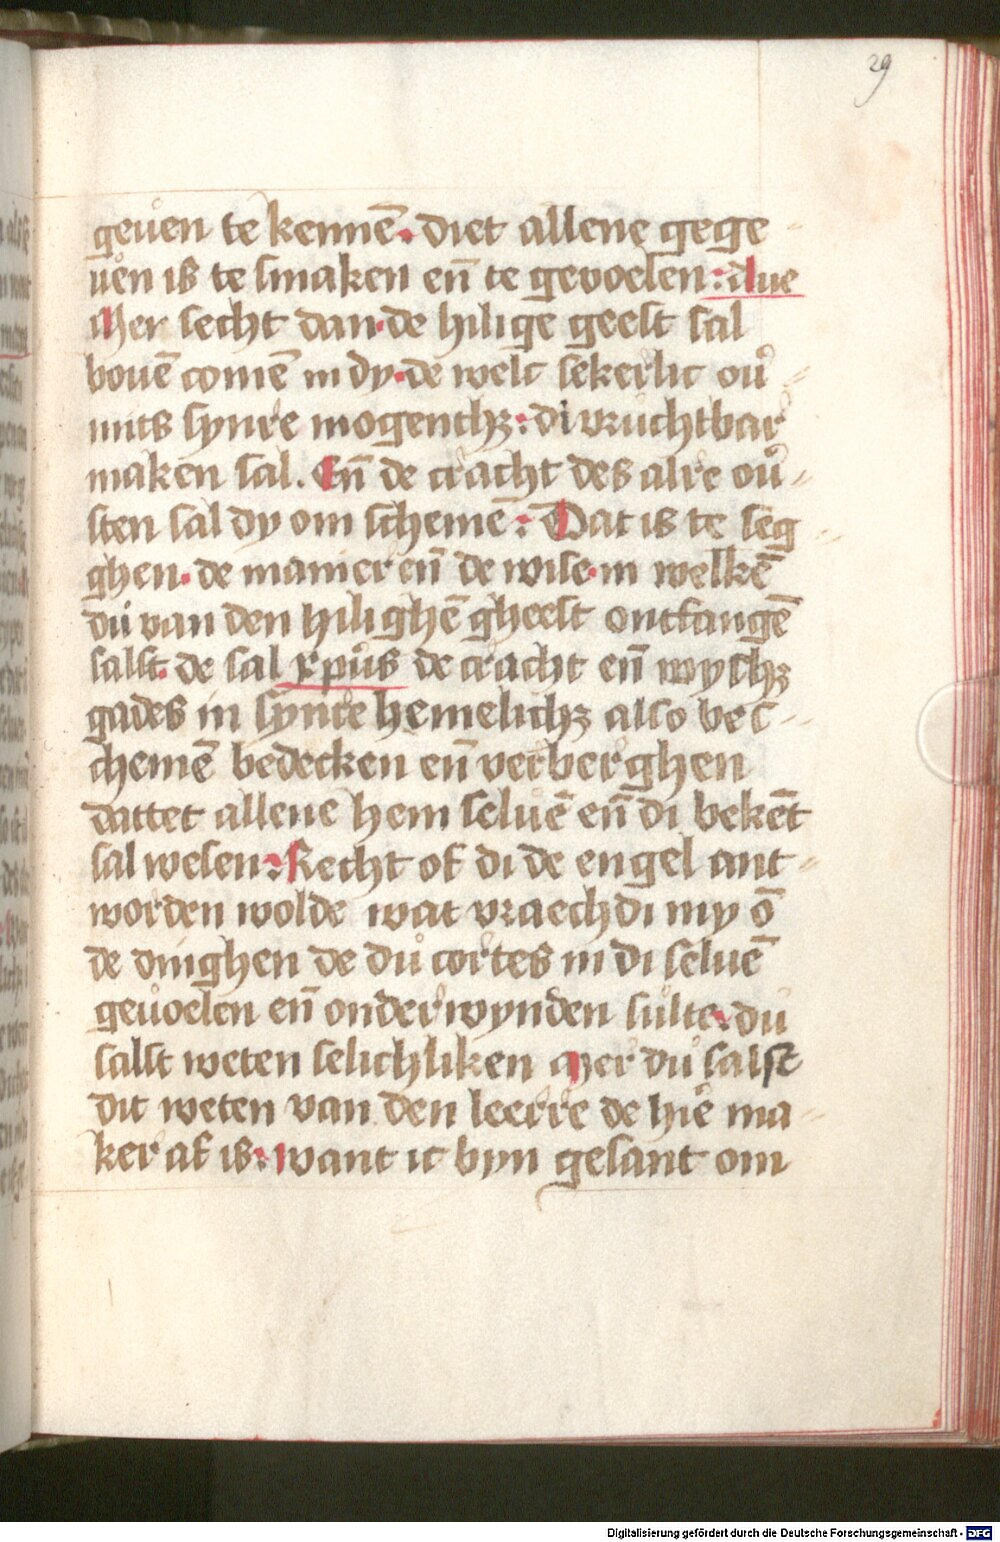 29
geuen te kennē. diet allene gege-
uen is te smaken en̄ te gevoelen: due
Mer secht dan. de hilige geest sal
bouē comē in dy. de welc sekerlic ou͛-
mits synre mogenthꝫ: di vruchtbar
maken sal. En̄ de cracht des alre ou͛-
sten sal dy om schemē: Dat is te seg
ghen. de manier en̄ de wise. in welkē
du van den hilighē gheest ontfangē
salst. de sal xpu͛s de cracht en̄ wyshꝫ
gades in synre hemelichꝫ also bes-
chemē bedecken en̄ verberghen
dattet allene hem seluē en̄ di bekēt
sal wesen: Recht of di de engel ant-
worden wolde wat vraechdi my ō
de dinghen de du cortes in di seluē
geuoelen en̄ onderwynden sulte. du
salst weten selichliken Mer du salst
dit weten van den leerre de hir̄e ma-
ker af is: want ic byn gesant om
Digitalisierung gefördert durch die Deutsche Forschungsgemeinschaft - DFG